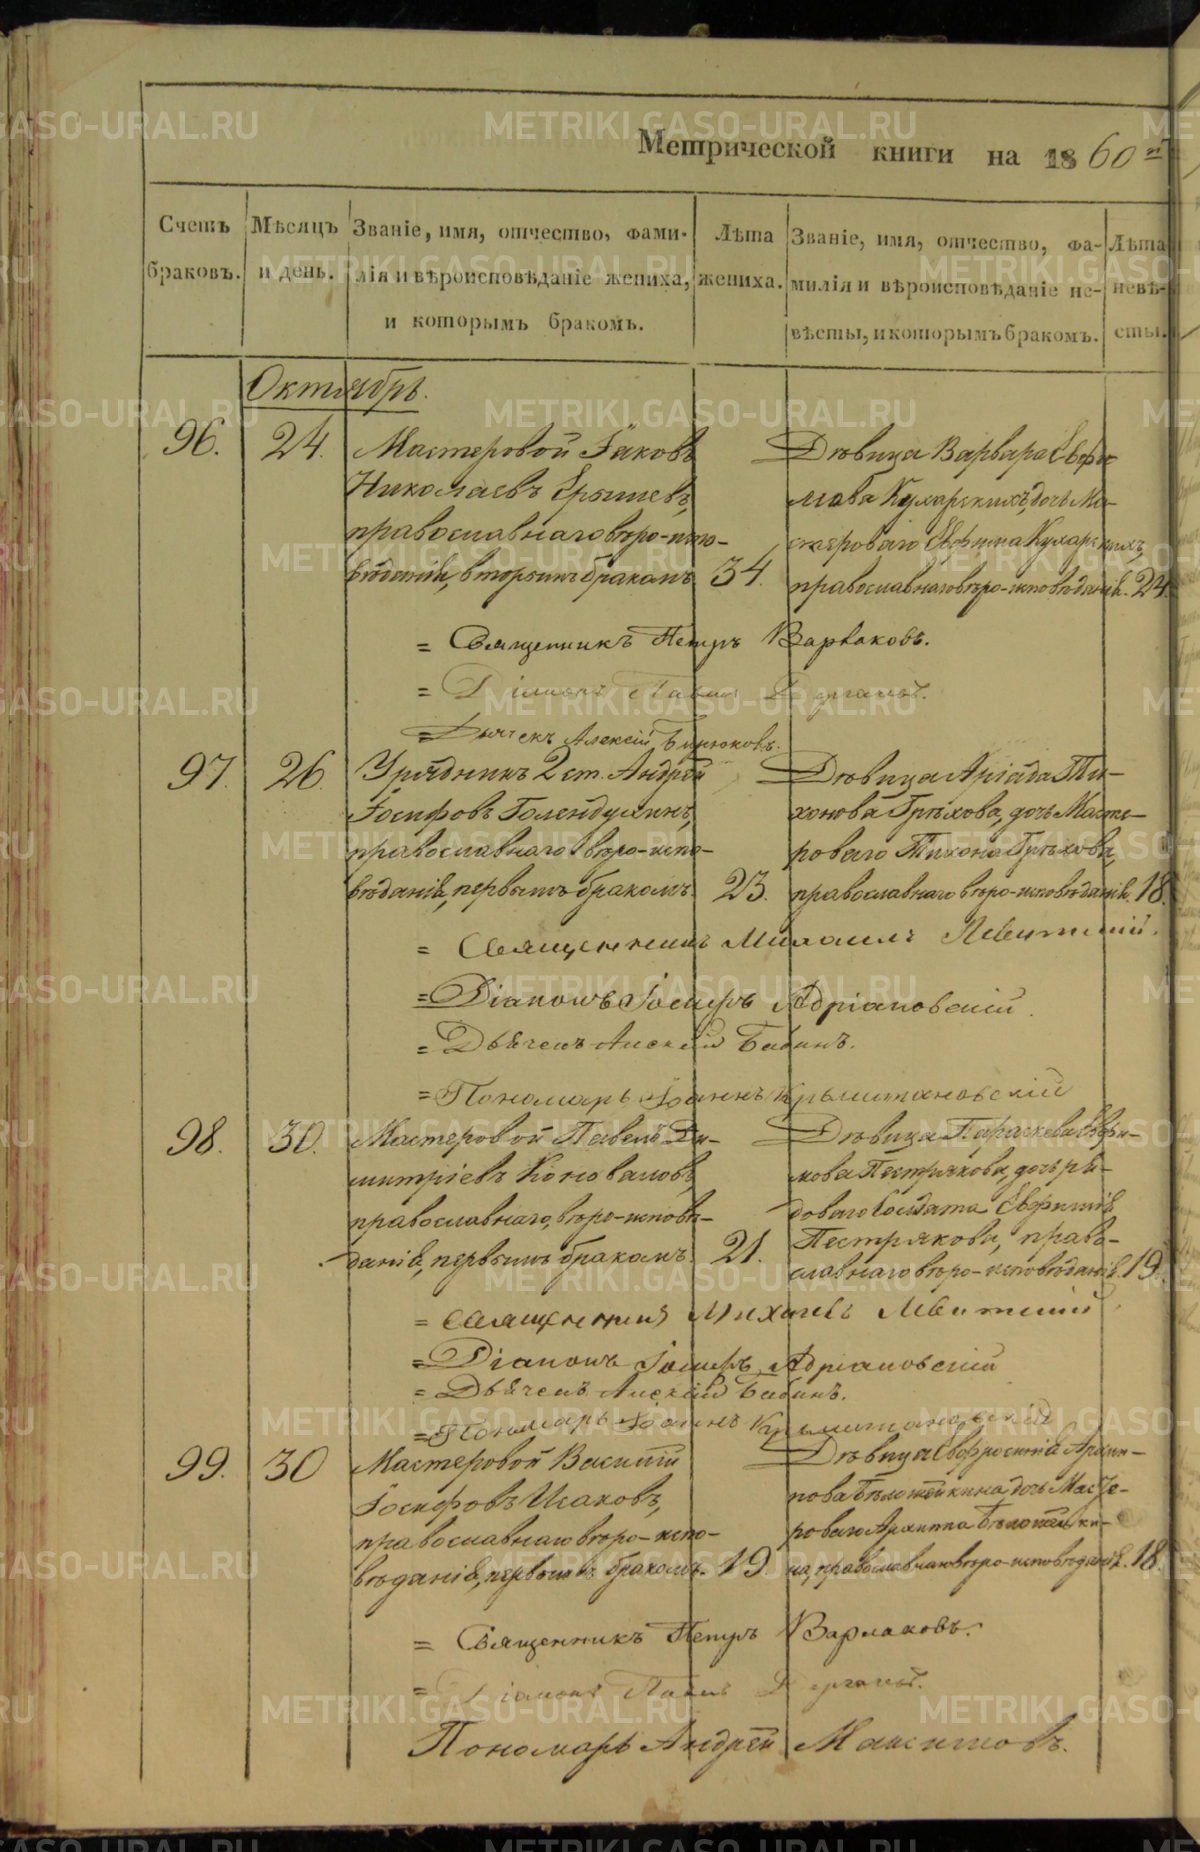 Метрической книги на 1860 й
Счетъ браковъ.
Мѣсяцъ и день.
Званіе, имя, отчество, фами-
лія и вѣроисповѣданіе жениха,
и которымъ бракомъ.
Лѣта жениха.
Званіе, имя, отчество, фа-
милія и вѣроисповѣданіе не-
вѣсты, и которымъ бракомъ.
Лѣта невѣ-
сты.
Октябрь.
96. 24.
Мастеровой Іаковъ
Николаевъ
православнаго вѣро-испо-
вѣданія, вторымъ бракомъ 34.
Дѣвица Варвара Ефи
мова Кухарскихъ, дочь Ма-
стероваго Ефима Кухарскихъ,
православнаго вѣро-исповѣданія. 24.
= Священникъ Петръ Варлаковъ.
= Діаконъ
= Дьячекъ Алексій Бирюковъ.
97. 26.
Урядникъ 2 ст. Андрей
Іосифовъ Голендухинъ,
православнаго вѣро-испо-
вѣданія, первымъ бракомъ. 23.
Дѣвица Аріада Ти-
хонова Грѣхова, дочь Масте-
роваго Тихона Грѣхова,
православнаго вѣро-исповѣданія. 18.
= Священникъ Михаилъ Левитскій.
= Діаконъ Іосифъ Адріановскій.
= Дьячекъ Алексій Бабинъ.
= Пономарь Іоаннъ Крыштановскій
98. 30.
Мастеровой Павелъ Ди-
митріевъ Коноваловъ,
православнаго вѣро-исповѣ-
данія, первымъ бракомъ. 21.
Дѣвица Параскева Евфи-
мова Пестрякова, дочь ря-
доваго Солдата Евфимія
Пестрякова, право-
славнаго вѣро-исповѣданія. 19.
= Священникъ Михаилъ Левитскій
= Діаконъ Іосифъ Адріановскій
= Дьячекъ Алексій Бабинъ.
= Пономарь Іоаннъ Крыштановскій
99. 30
Мастеровой Василій
Іосифовъ Исаковъ,
православнаго вѣро-испо-
вѣданія, первымъ бракомъ. 19
Дѣвица Евфросинія Архип-
пова Бѣлошейкина, дочь Масте-
роваго Архиппа Бѣлошейки-
на, православнаго вѣро-исповѣданія. 18.
= Священникъ Петръ Варлаковъ.
= Діаконъ
Пономарь Андрей Максимовъ.
METRIKI.GASO-URAL.RU